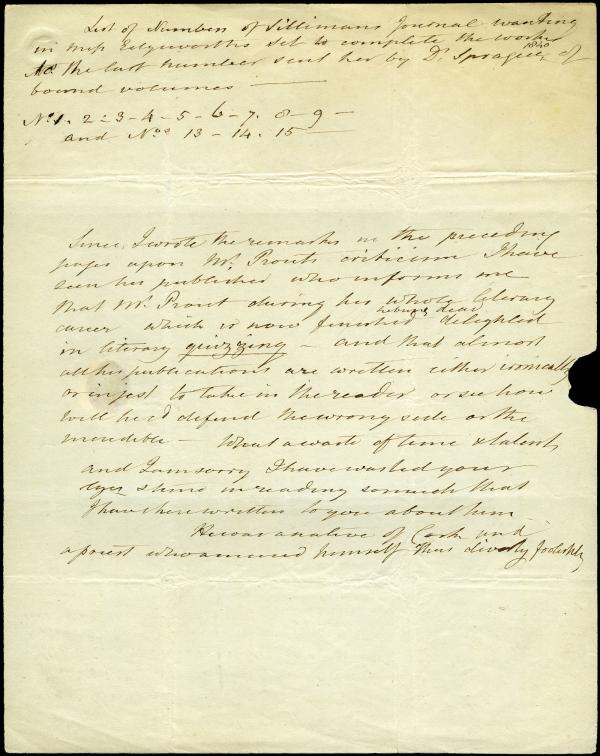 List of Numbers of Sillimans Journal wanting
in miss Edgeworths set to complete the work
the last number sent her by Dr. Sprague 1840 of
bound volumes —
No. 1. 2 - 3 - 4 - 5 - 6 - 7. 8 - 9 —
and Nos 13 - 14. 15 —
Since I wrote the remarks in the preceding
pages upon Mr. Prouts criticism I have
seen his publisher who informs me
that Mr. Prout during his whole literary
career which is now finished he being dead delighted
in literary quizzing — and that almost
all his publications are written either ironically
or in jest to take in the reader or see how
well he cd defend the wrong side or the
incredible — What a waste of time & talents
and I am sorry I have wasted your
eyes & time in reading so much that
I have here written to you about him
He was a native of Cork and
a priest who amused himself thus foolishly